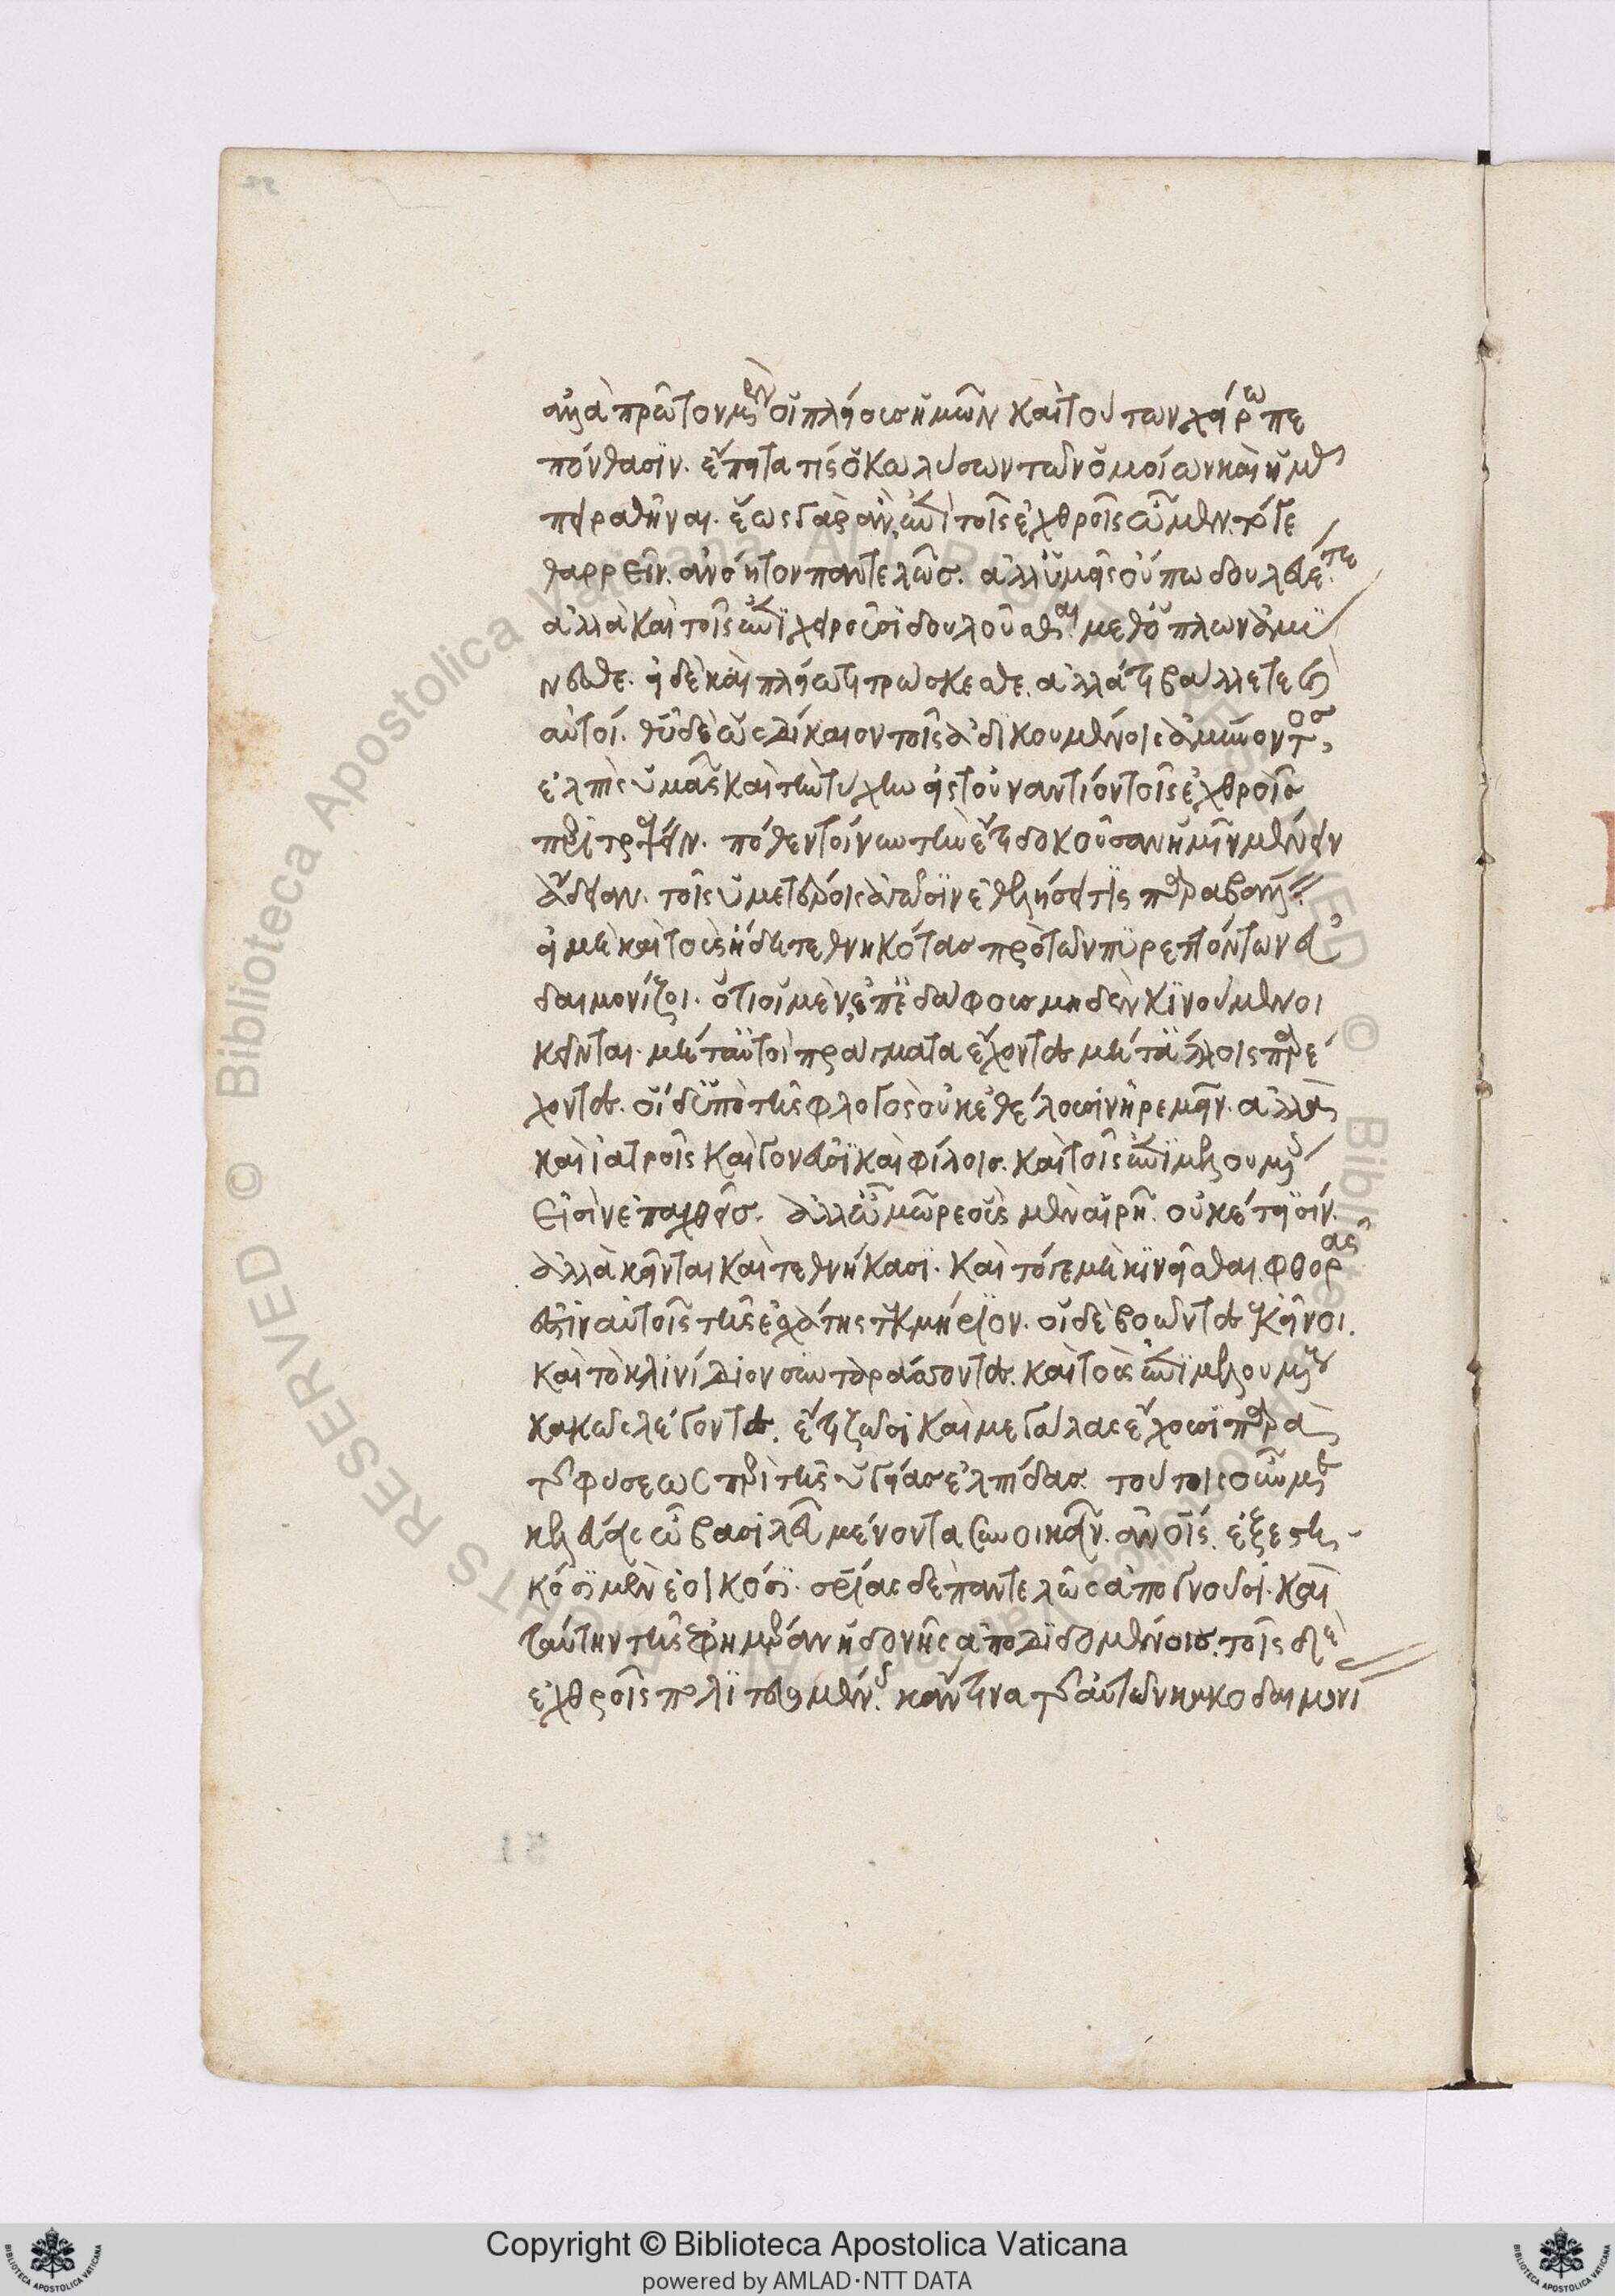 ἀλλὰ πρῶτον μὲν οἱ πλείους ἡμῶν καὶ τούτων χείρω πε
πόνθασιν. ἔπειτα τίς ὁ κωλύσων τῶν ὁμοίων καὶ ἡμᾶς
πειραθῆναι. ἕως γὰρ ἂν ἐπὶ τοῖς ἐχθροῖς ὦμεν. τό γε
θαρρεῖν. ἀνόητον παντελῶς. ἀλλ' ὑμεῖς οὔπω δουλεύετε.
ἀλλὰ καὶ τοῖς ἐπιχειροῦσι δουλοῦσθαι μεθ' ὅπλων ἀμύ
νεσθε. εἰ δὲ καὶ πλείω τιτρώσκεσθε. ἀλλά τι βάλλετε καὶ
αὐτοί. θεὸς δὲ ὡς δίκαιον τοῖς ἀδικουμένοις ἀμύνοντος,
ἐλπὶς ὑμᾶς καὶ τὴν τύχην εἰς τοὐναντίον τοῖς ἐχθροῖς
περιτρέψειν. πόθεν τοίνυν τὴν ἔτι δοκοῦσαν ἡμῖν μένειν
ἄδειαν. τοῖς ὑμετέροις δεινοῖς ἐθελήσει τις παραβαλεῖν.
εἰ μὴ καὶ τοὺς ἤδη τεθνηκότας πρὸ τῶν πυρεττόντων εὐ
δαιμονίζοι. ὅτι οἱ μὲν ἐπ' ἐδάφους μηδὲν κινούμενοι
κεῖνται. μήτ' αὐτοὶ πράγματα ἔχοντες μήτ' ἄλλοις παρέ
χοντες. οἱ δ' ὑπὸ τῆς φλογὸς οὐκ ἐθέλουσιν ἠρεμεῖν. ἀλλὰ
καὶ ἰατροῖς καὶ γονεῦσι καὶ φίλοις. καὶ τοῖς ἐπιμελουμένοις
εἰσὶν ἐπαχθεῖς.
ἀλλὰ κεῖνται καὶ τεθνήκασι. καὶ τό γε μὴ κινεῖσθαι. φθορᾶς
ἐστιν αὐτοῖς τῆς ἐσχάτης τεκμήριον. οἱ δὲ βοῶντες ἐκεῖνοι.
καὶ τὸ κλινίδιον συνταράσσοντες. καὶ τοὺς ἐπιμελουμένους
κακῶς λέγοντες. ἔτι ζῶσι καὶ μεγάλας ἔχουσι παρὰ
τῆς φύσεως περὶ τῆς ὑγείας ἐλπίδας. τούτοις οὖν ὑμεῖς
μένοντας οἰκεῖν. ἐξεστη
κόσι μὲν ἐοικόσι. σωτηρίας δὲ παντελῶς ἀπογνοῦσι. καὶ
ταύτην τῆς ἐφημέρου ἡδονῆς ἀποδιδομένοις. τοῖς δὲ
ἐχθροῖς πολιτευομένους. κἄν τινα τῆς αὐτῶν κακοδαιμονί